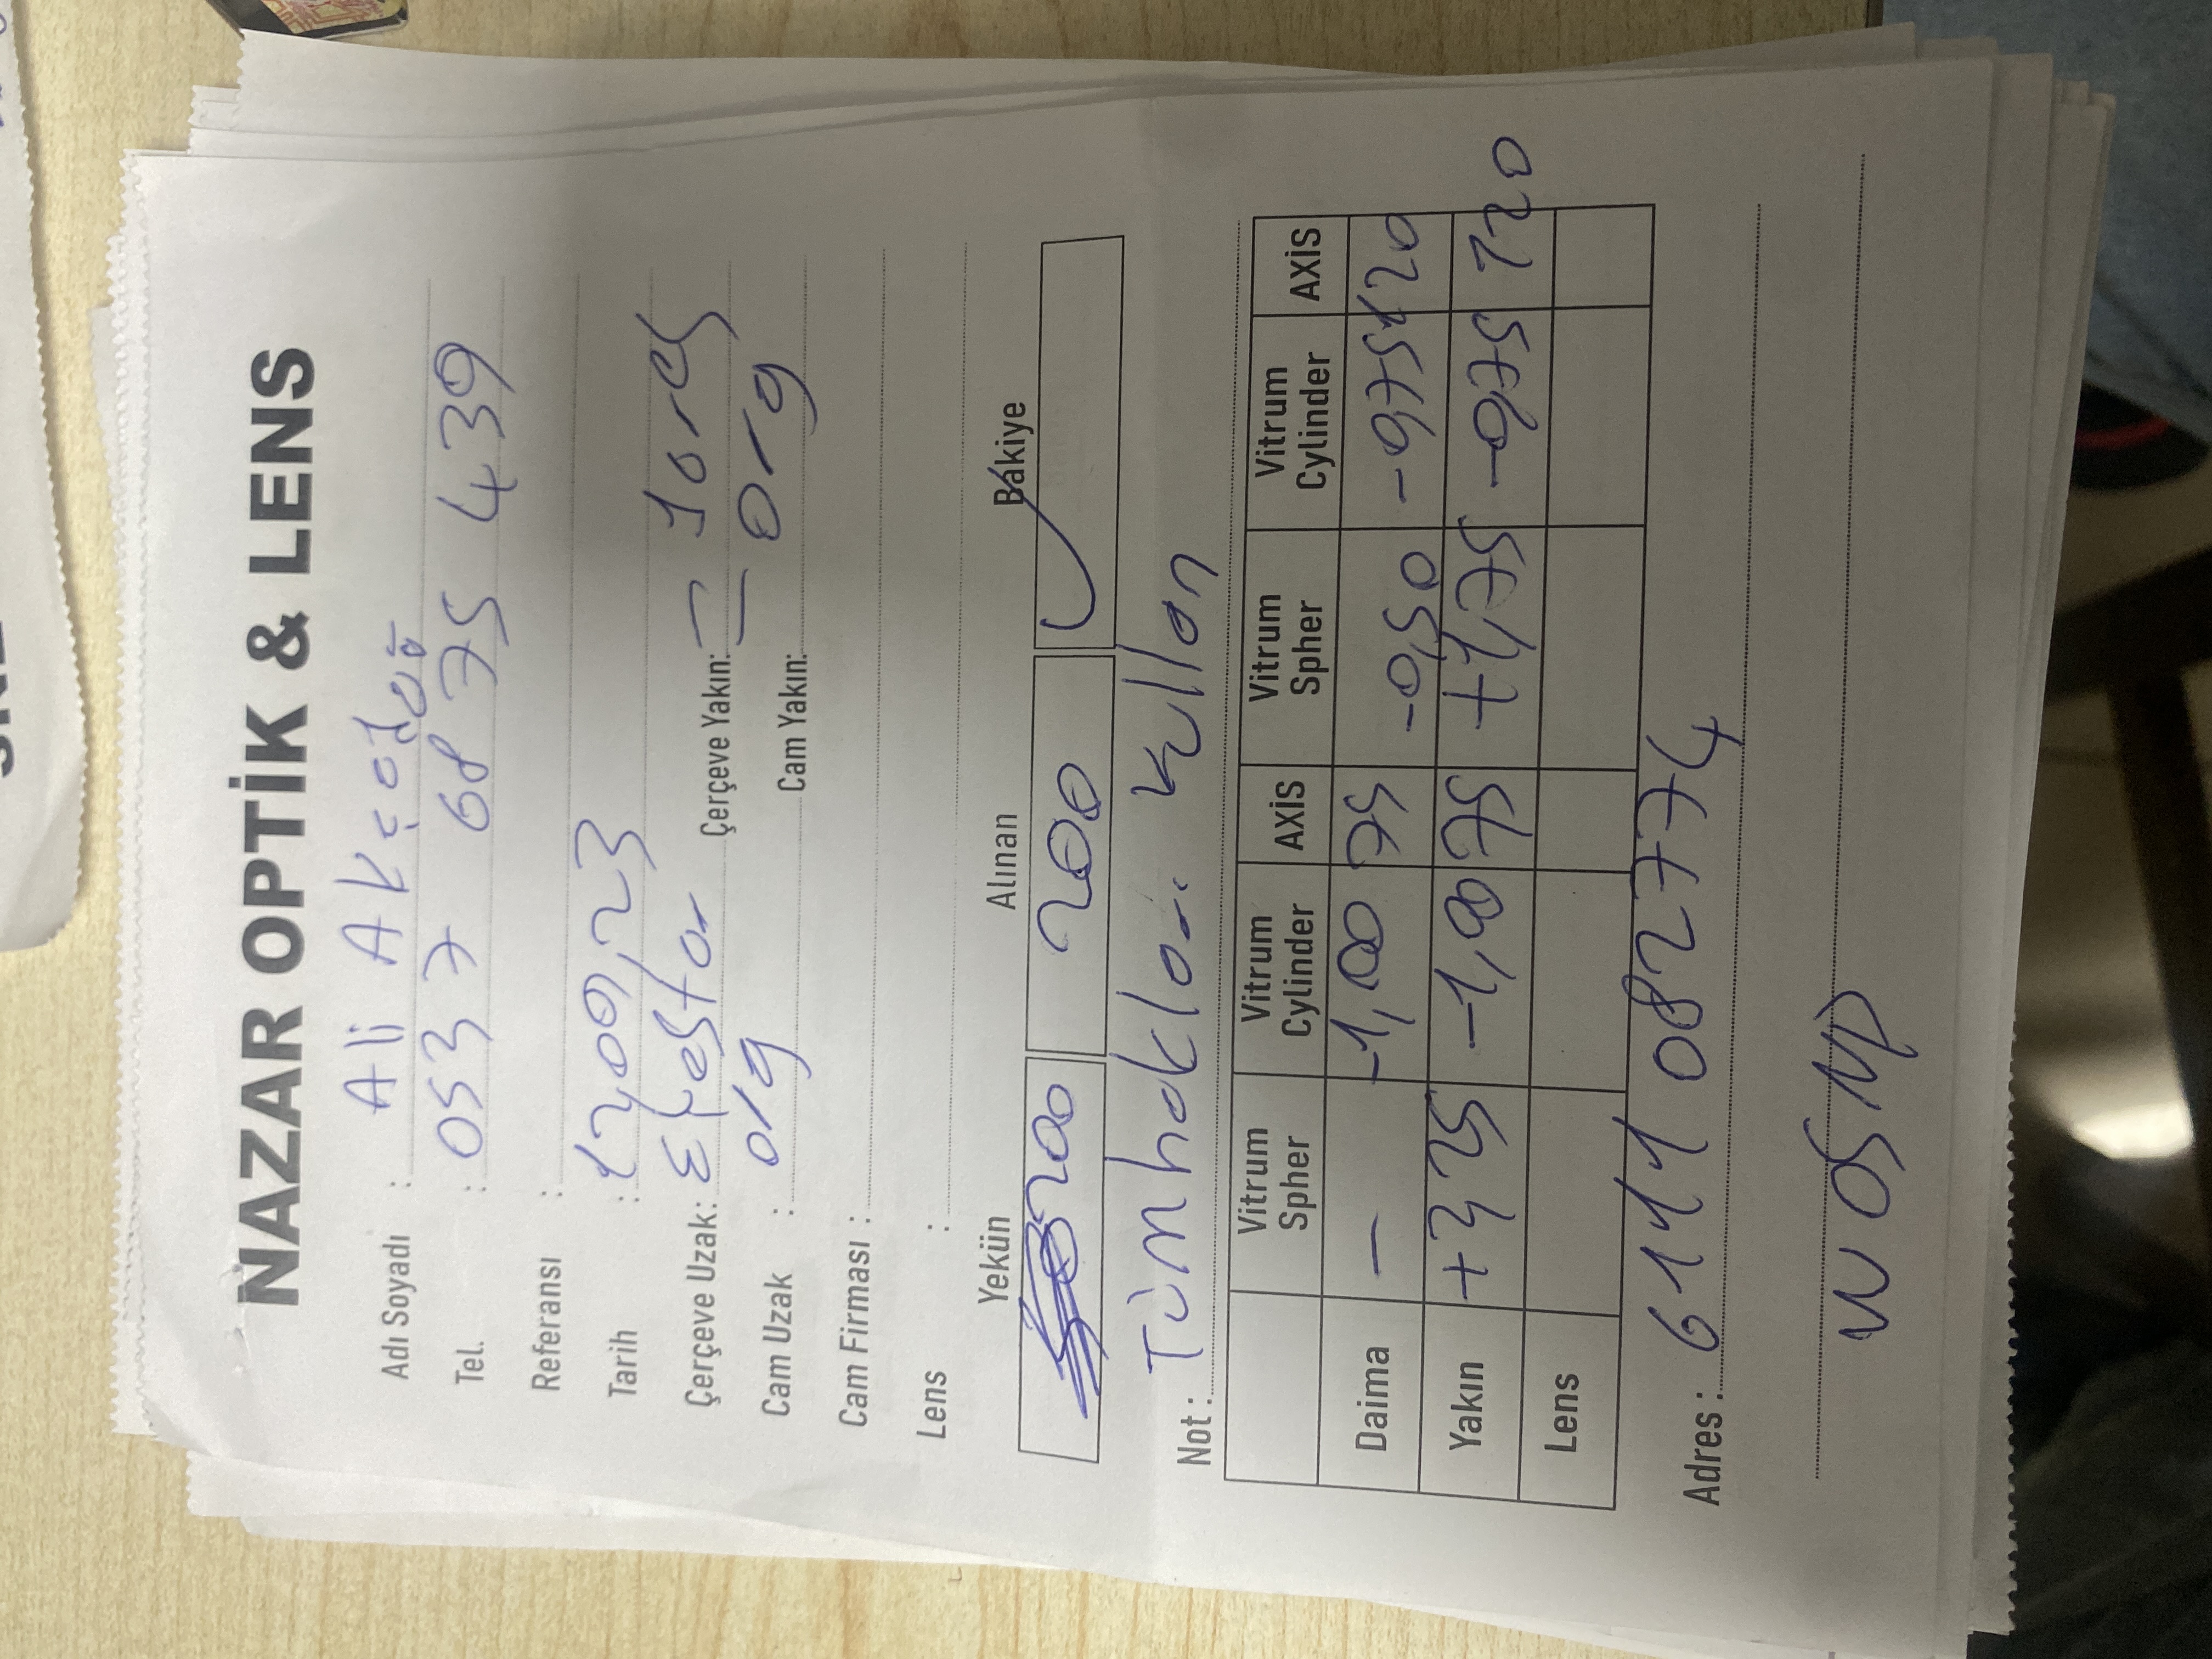 NAZAR OPTİK & LENS
Adı Soyadı : Ali
Tel. : 0537 68 75 439
Referansı :
Tarih : 12,09,23
Çerçeve Uzak: Çerçeve Yakın:
Cam Uzak : org Cam Yakın: org
Cam Firması :
Lens :
Yekün Alınan Bakiye
200 200
Not : Tüm hakları Kullan
Vitrum Spher Vitrum Cylinder AXİS Vitrum Spher Vitrum Cylinder AXİS
Daima — -1,00 75 -0,50 -0,75 120
Yakın +2,25 -1,00 75 +1,75 -0,75 120
Lens
Adres : 6111 082774